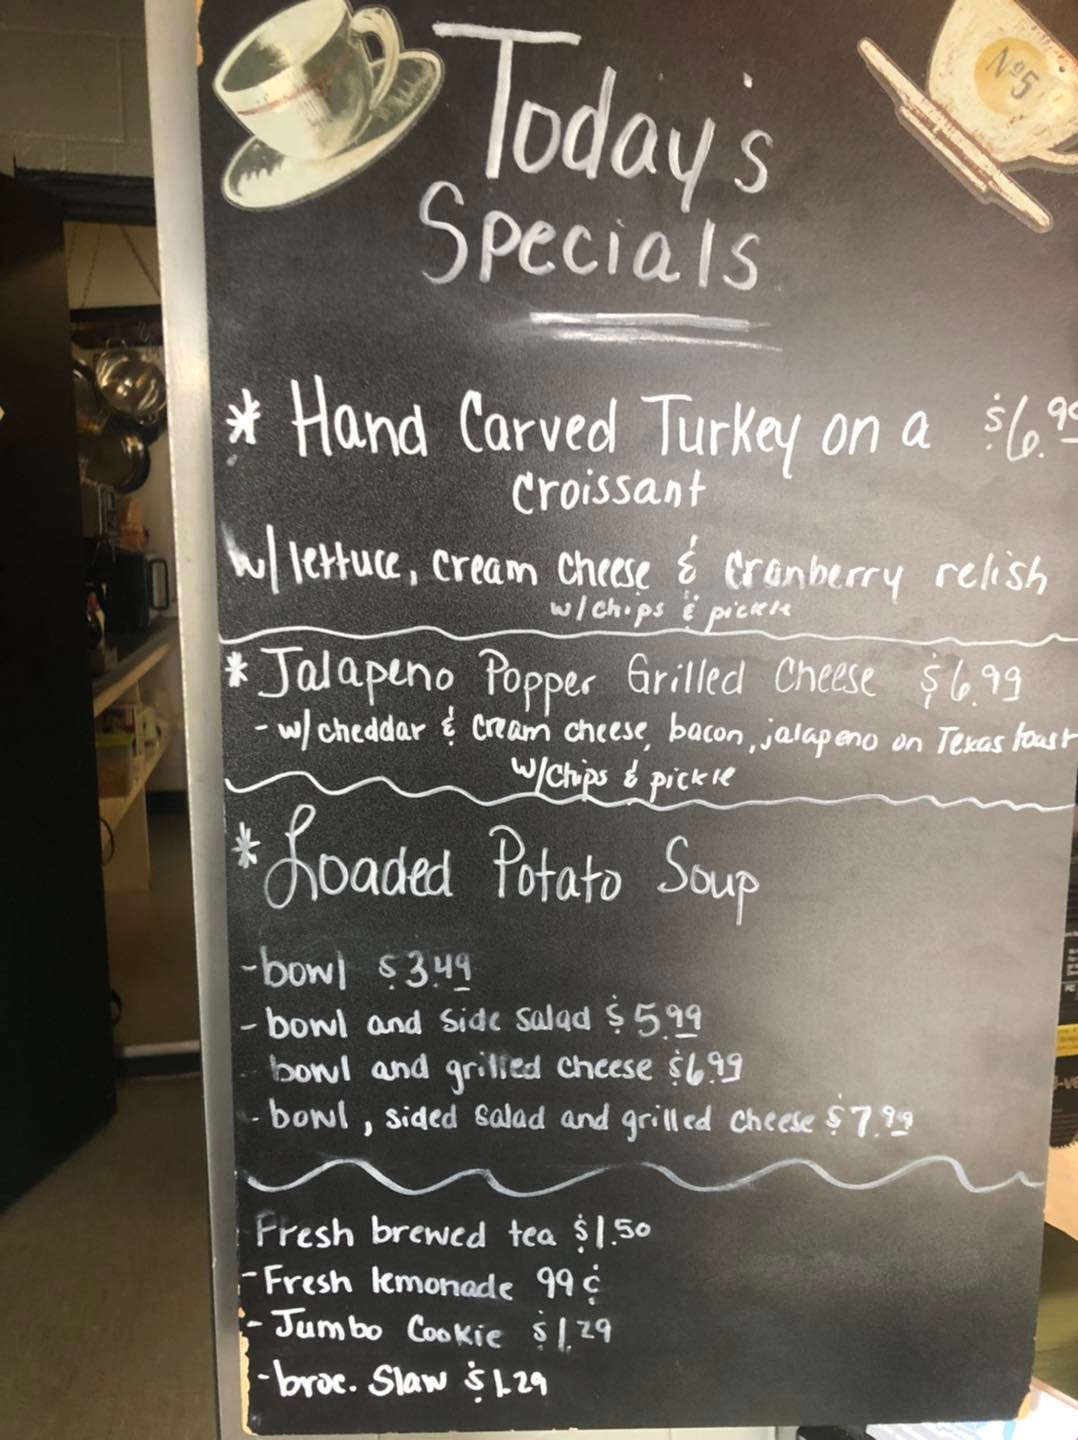 Nº5
Today's
Specials
* Hand Carved Turkey on a $6.99
croissant
w/ lettuce, cream cheese & cranberry relish
w/ chips & pickle
* Jalapeno Popper Grilled Cheese $6.99
- w/ cheddar & cream cheese, bacon, jalapeno on Texas toast
w/ chips & pickle
* Loaded Potato Soup
- bowl $3.49
- bowl and side salad $5.99
- bowl and grilled cheese $6.99
- bowl, sided salad and grilled cheese $7.99
Fresh brewed tea $1.50
- Fresh lemonade 99¢
- Jumbo Cookie $1.29
- broc. Slaw $1.29